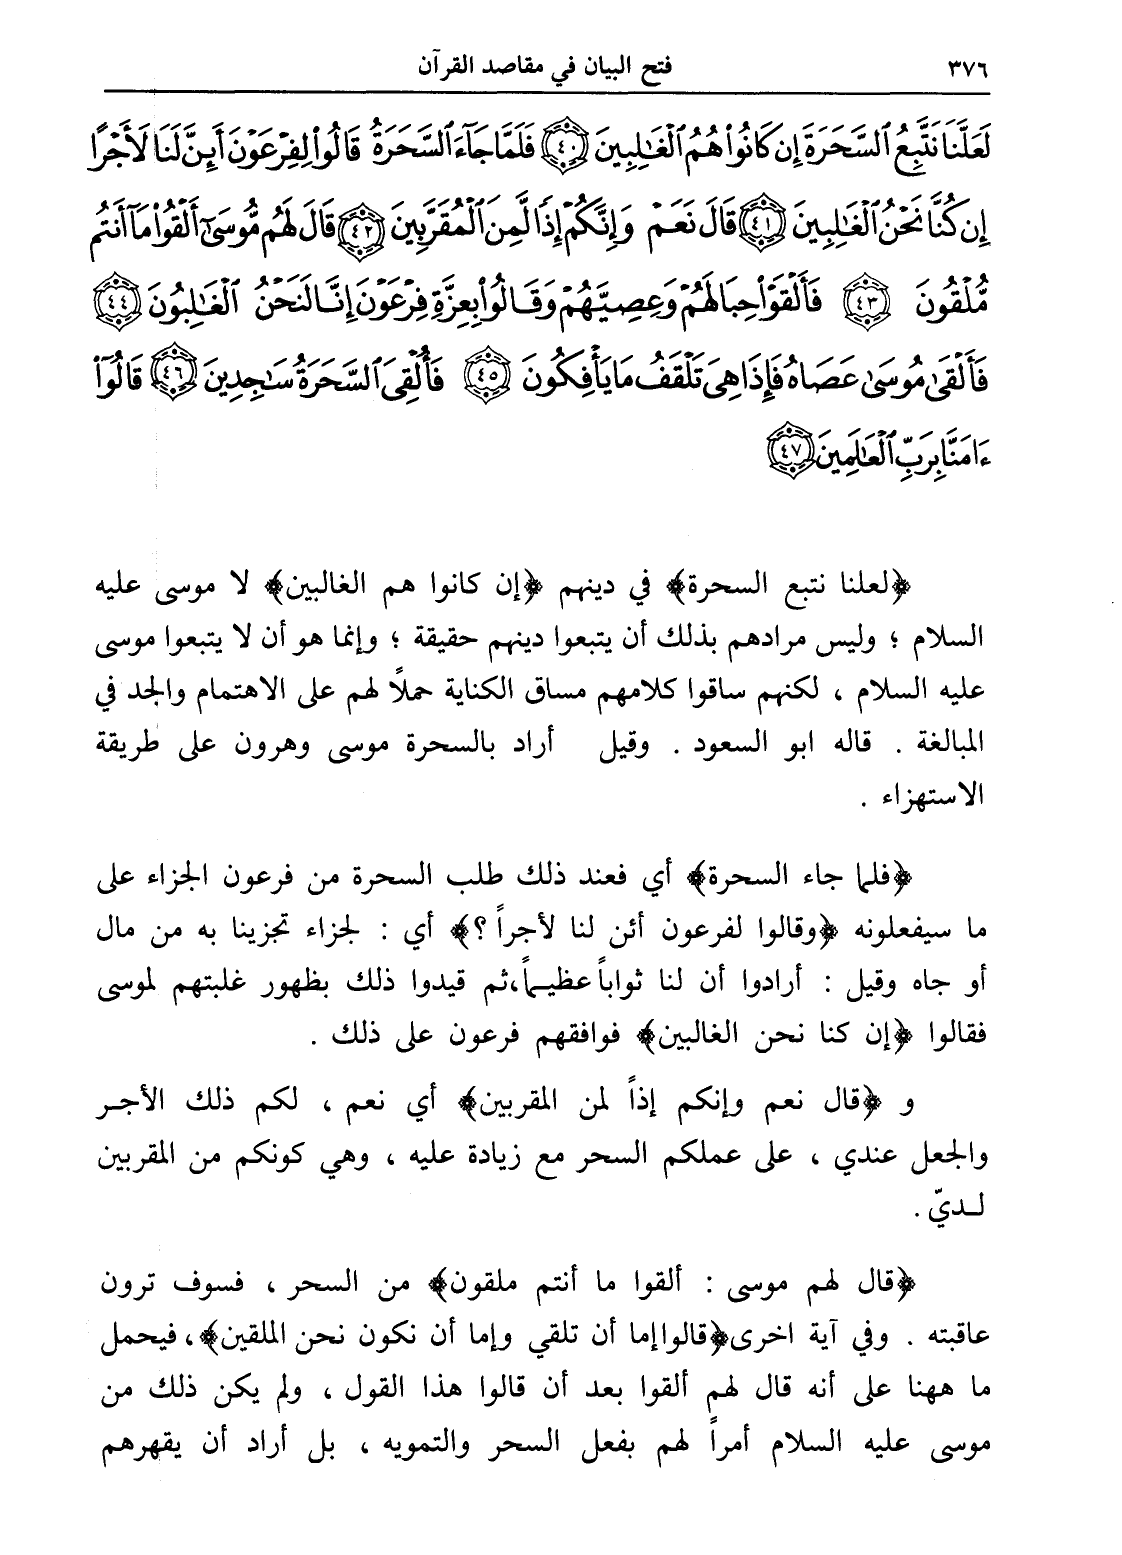 ٣٧٦ فتح البيان في مقاصد القرآن
لَعَلَّنَا نَتَّبِعُ ٱلسَّحَرَةَ إِن كَانُوا۟ هُمُ ٱلْغَٰلِبِينَ ٤٠ فَلَمَّا جَآءَ ٱلسَّحَرَةُ قَالُوا۟ لِفِرْعَوْنَ أَئِنَّ لَنَا لَأَجْرًا
إِن كُنَّا نَحْنُ ٱلْغَٰلِبِينَ ٤١ قَالَ نَعَمْ وَإِنَّكُمْ إِذًا لَّمِنَ ٱلْمُقَرَّبِينَ ٤٢ قَالَ لَهُم مُّوسَىٰٓ أَلْقُوا۟ مَآ أَنتُم
مُّلْقُونَ ٤٣ فَأَلْقَوْا۟ حِبَالَهُمْ وَعِصِيَّهُمْ وَقَالُوا۟ بِعِزَّةِ فِرْعَوْنَ إِنَّا لَنَحْنُ ٱلْغَٰلِبُونَ ٤٤
فَأَلْقَىٰ مُوسَىٰ عَصَاهُ فَإِذَا هِىَ تَلْقَفُ مَا يَأْفِكُونَ ٤٥ فَأُلْقِىَ ٱلسَّحَرَةُ سَٰجِدِينَ ٤٦ قَالُوٓا۟
ءَامَنَّا بِرَبِّ ٱلْعَٰلَمِينَ ٤٧
﴿لعلنا نتبع السحرة﴾ في دينهم ﴿إن كانوا هم الغالبين﴾ لا موسى عليه
السلام ؛ وليس مرادهم بذلك أن يتبعوا دينهم حقيقة ؛ وإنما هو أن لا يتبعوا موسى
عليه السلام ، لكنهم ساقوا كلامهم مساق الكناية حملاً لهم على الاهتمام والجد في
المبالغة . قاله ابو السعود . وقيل أراد بالسحرة موسى وهرون على طريقة
الاستهزاء .
﴿فلما جاء السحرة﴾ أي فعند ذلك طلب السحرة من فرعون الجزاء على
ما سيفعلونه ﴿وقالوا لفرعون أئن لنا لأجراً ؟﴾ أي : لجزاء تجزينا به من مال
أو جاه وقيل : أرادوا أن لنا ثواباً عظيـماً،ثم قيدوا ذلك بظهور غلبتهم لموسى
فقالوا ﴿إن كنا نحن الغالبين﴾ فوافقهم فرعون على ذلك .
و ﴿قال نعم وإنكم إذاً لمن المقربين﴾ أي نعم ، لكم ذلك الأجـر
والجعل عندي ، على عملكم السحر مع زيادة عليه ، وهي كونكم من المقربين
لـديّ .
﴿قال لهم موسى : ألقوا ما أنتم ملقون﴾ من السحر ، فسوف ترون
عاقبته . وفي آية اخرى﴿قالوا إما أن تلقي وإما أن نكون نحن الملقين﴾، فيحمل
ما ههنا على أنه قال لهم ألقوا بعد أن قالوا هذا القول ، ولم يكن ذلك من
موسى عليه السلام أمراً لهم بفعل السحر والتمويه ، بل أراد أن يقهرهم